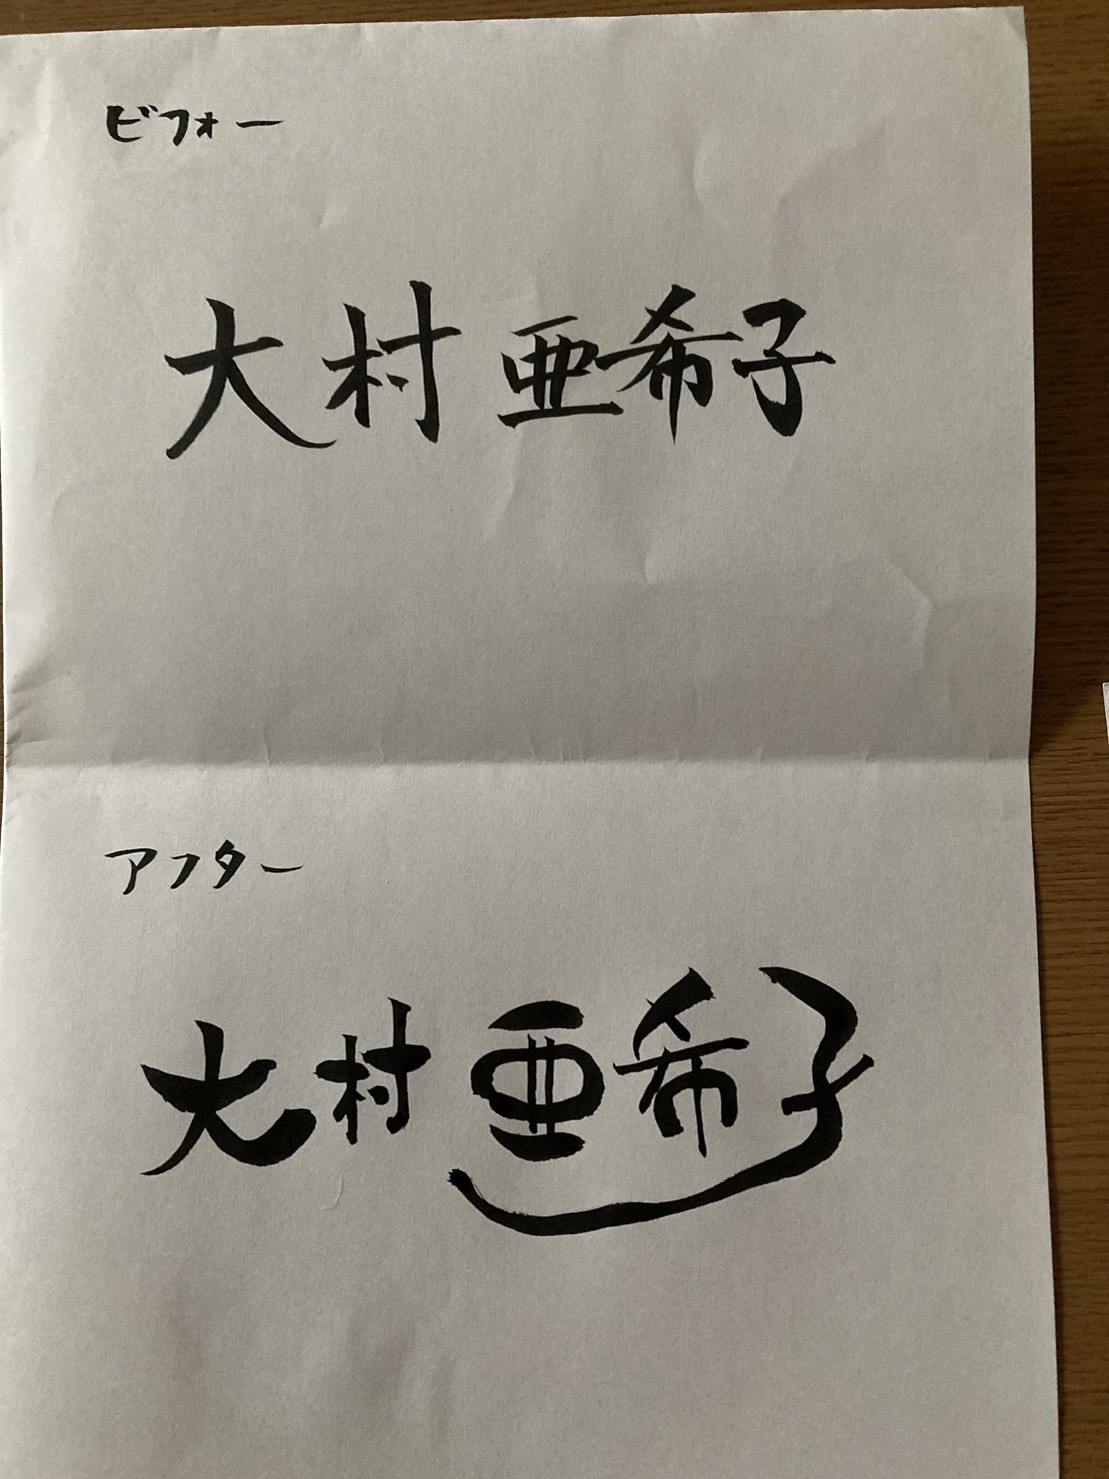 ビフォー
大村亜希子
アフター
大村亜希子